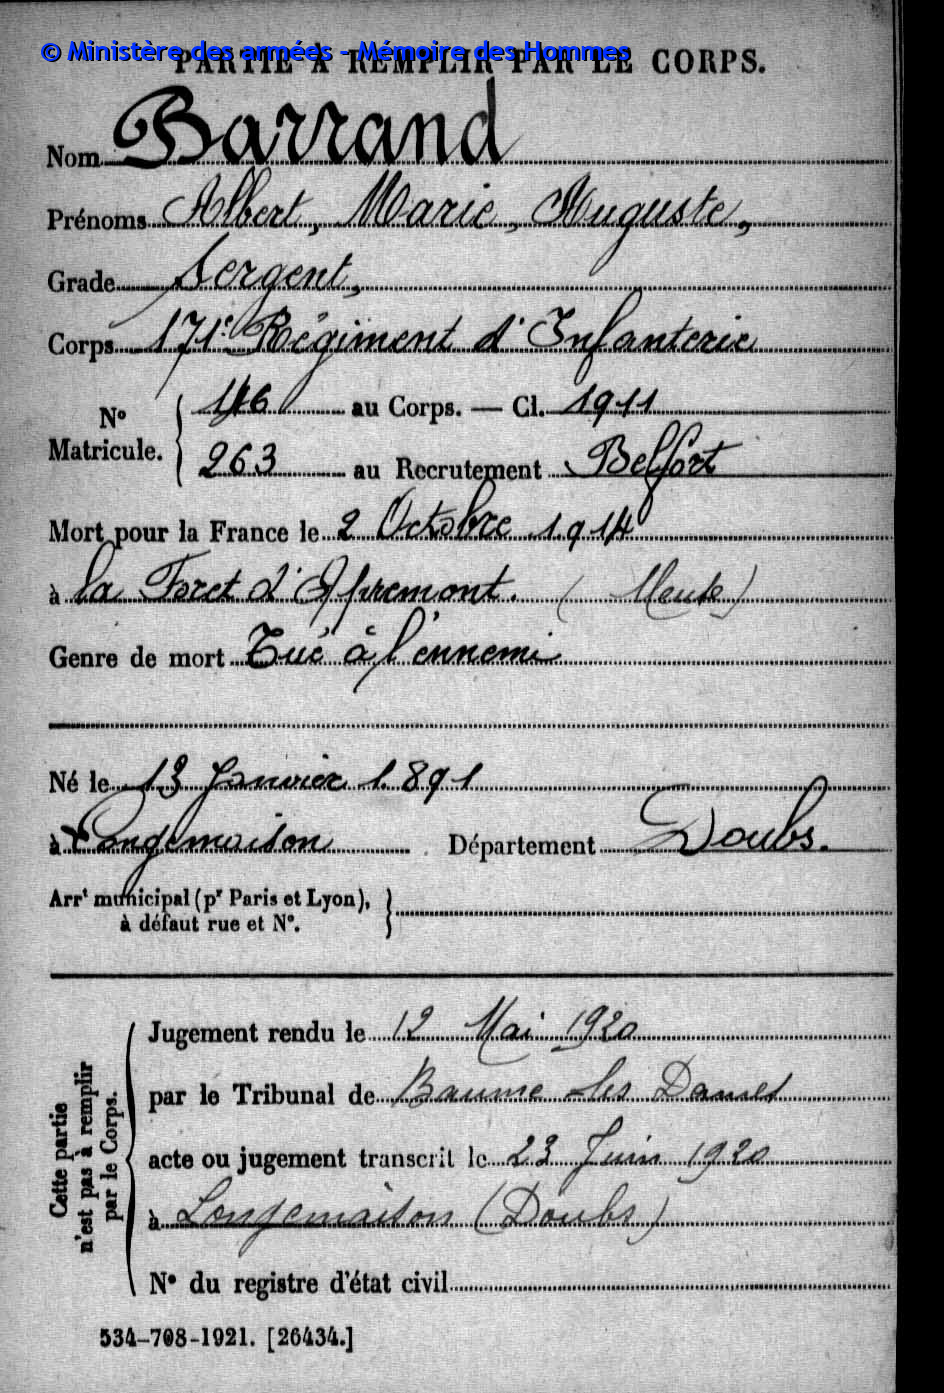 © Ministère des armées - Mémoire des Hommes
PARTIE À REMPLIR PAR LE CORPS.
Nom Barrand
Prénoms Albert, Marie, Auguste,
Grade Sergent,
Corps 171e Régiment d'Infanterie
N° Matricule. 146 au Corps. — Cl. 1911
263 au Recrutement Belfort
Mort pour la France le 2 Octobre 1914
à la Foret d'Apremont. (Meuse)
Genre de mort Tué à l'ennemi
Né le 13 Janvier 1891
à Longemaison Département Doubs.
Arrt municipal (pr Paris et Lyon),
à défaut rue et N°.
Cette partie
n'est pas à remplir
par le Corps.
Jugement rendu le 12 Mai 1920
par le Tribunal de Baume les Dames
acte ou jugement transcrit le 23 Juin 1920
à Longemaison (Doubs)
N° du registre d'état civil
534-708-1921. [26434.]